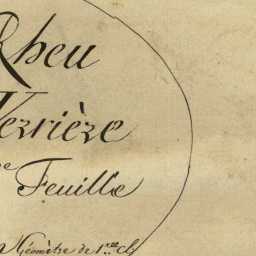 Rheu
Verrière
Feuille
Géomètre de 1re Cl